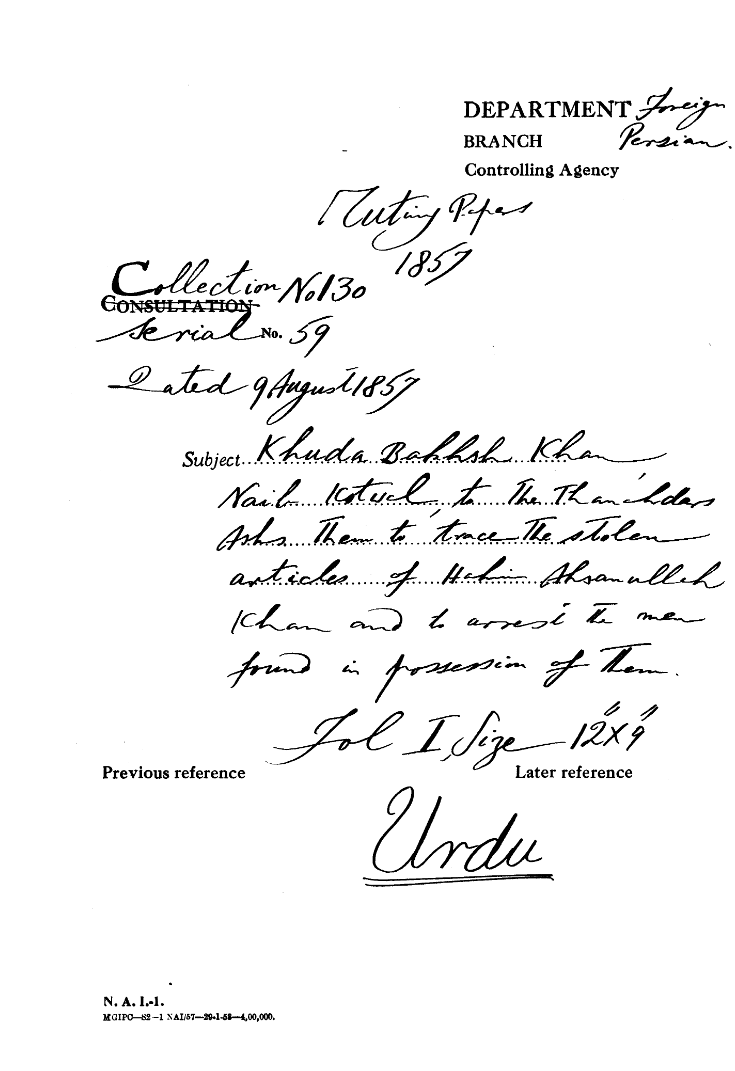 DEPARTMENT Foreign
BRANCH Persian.
Controlling Agency
Mutiny Papers
1857
Collection No 130
CONSULTATION
Serial No. 59
Dated 9 August 1857
Subject Khuda Bakhsh Khan
Naib Kotwal, to the Thanahdars
Asks them to trace the stolen
articles of Hakim Ahsanullah
Khan and to arrest the men
found in possession of them.
Fol I, Size 12" X 9"
Previous reference Later reference
Urdu
N. A. I.-1.
MGIPC—S2—1 NAI/57—29-1-58—4,00,000.